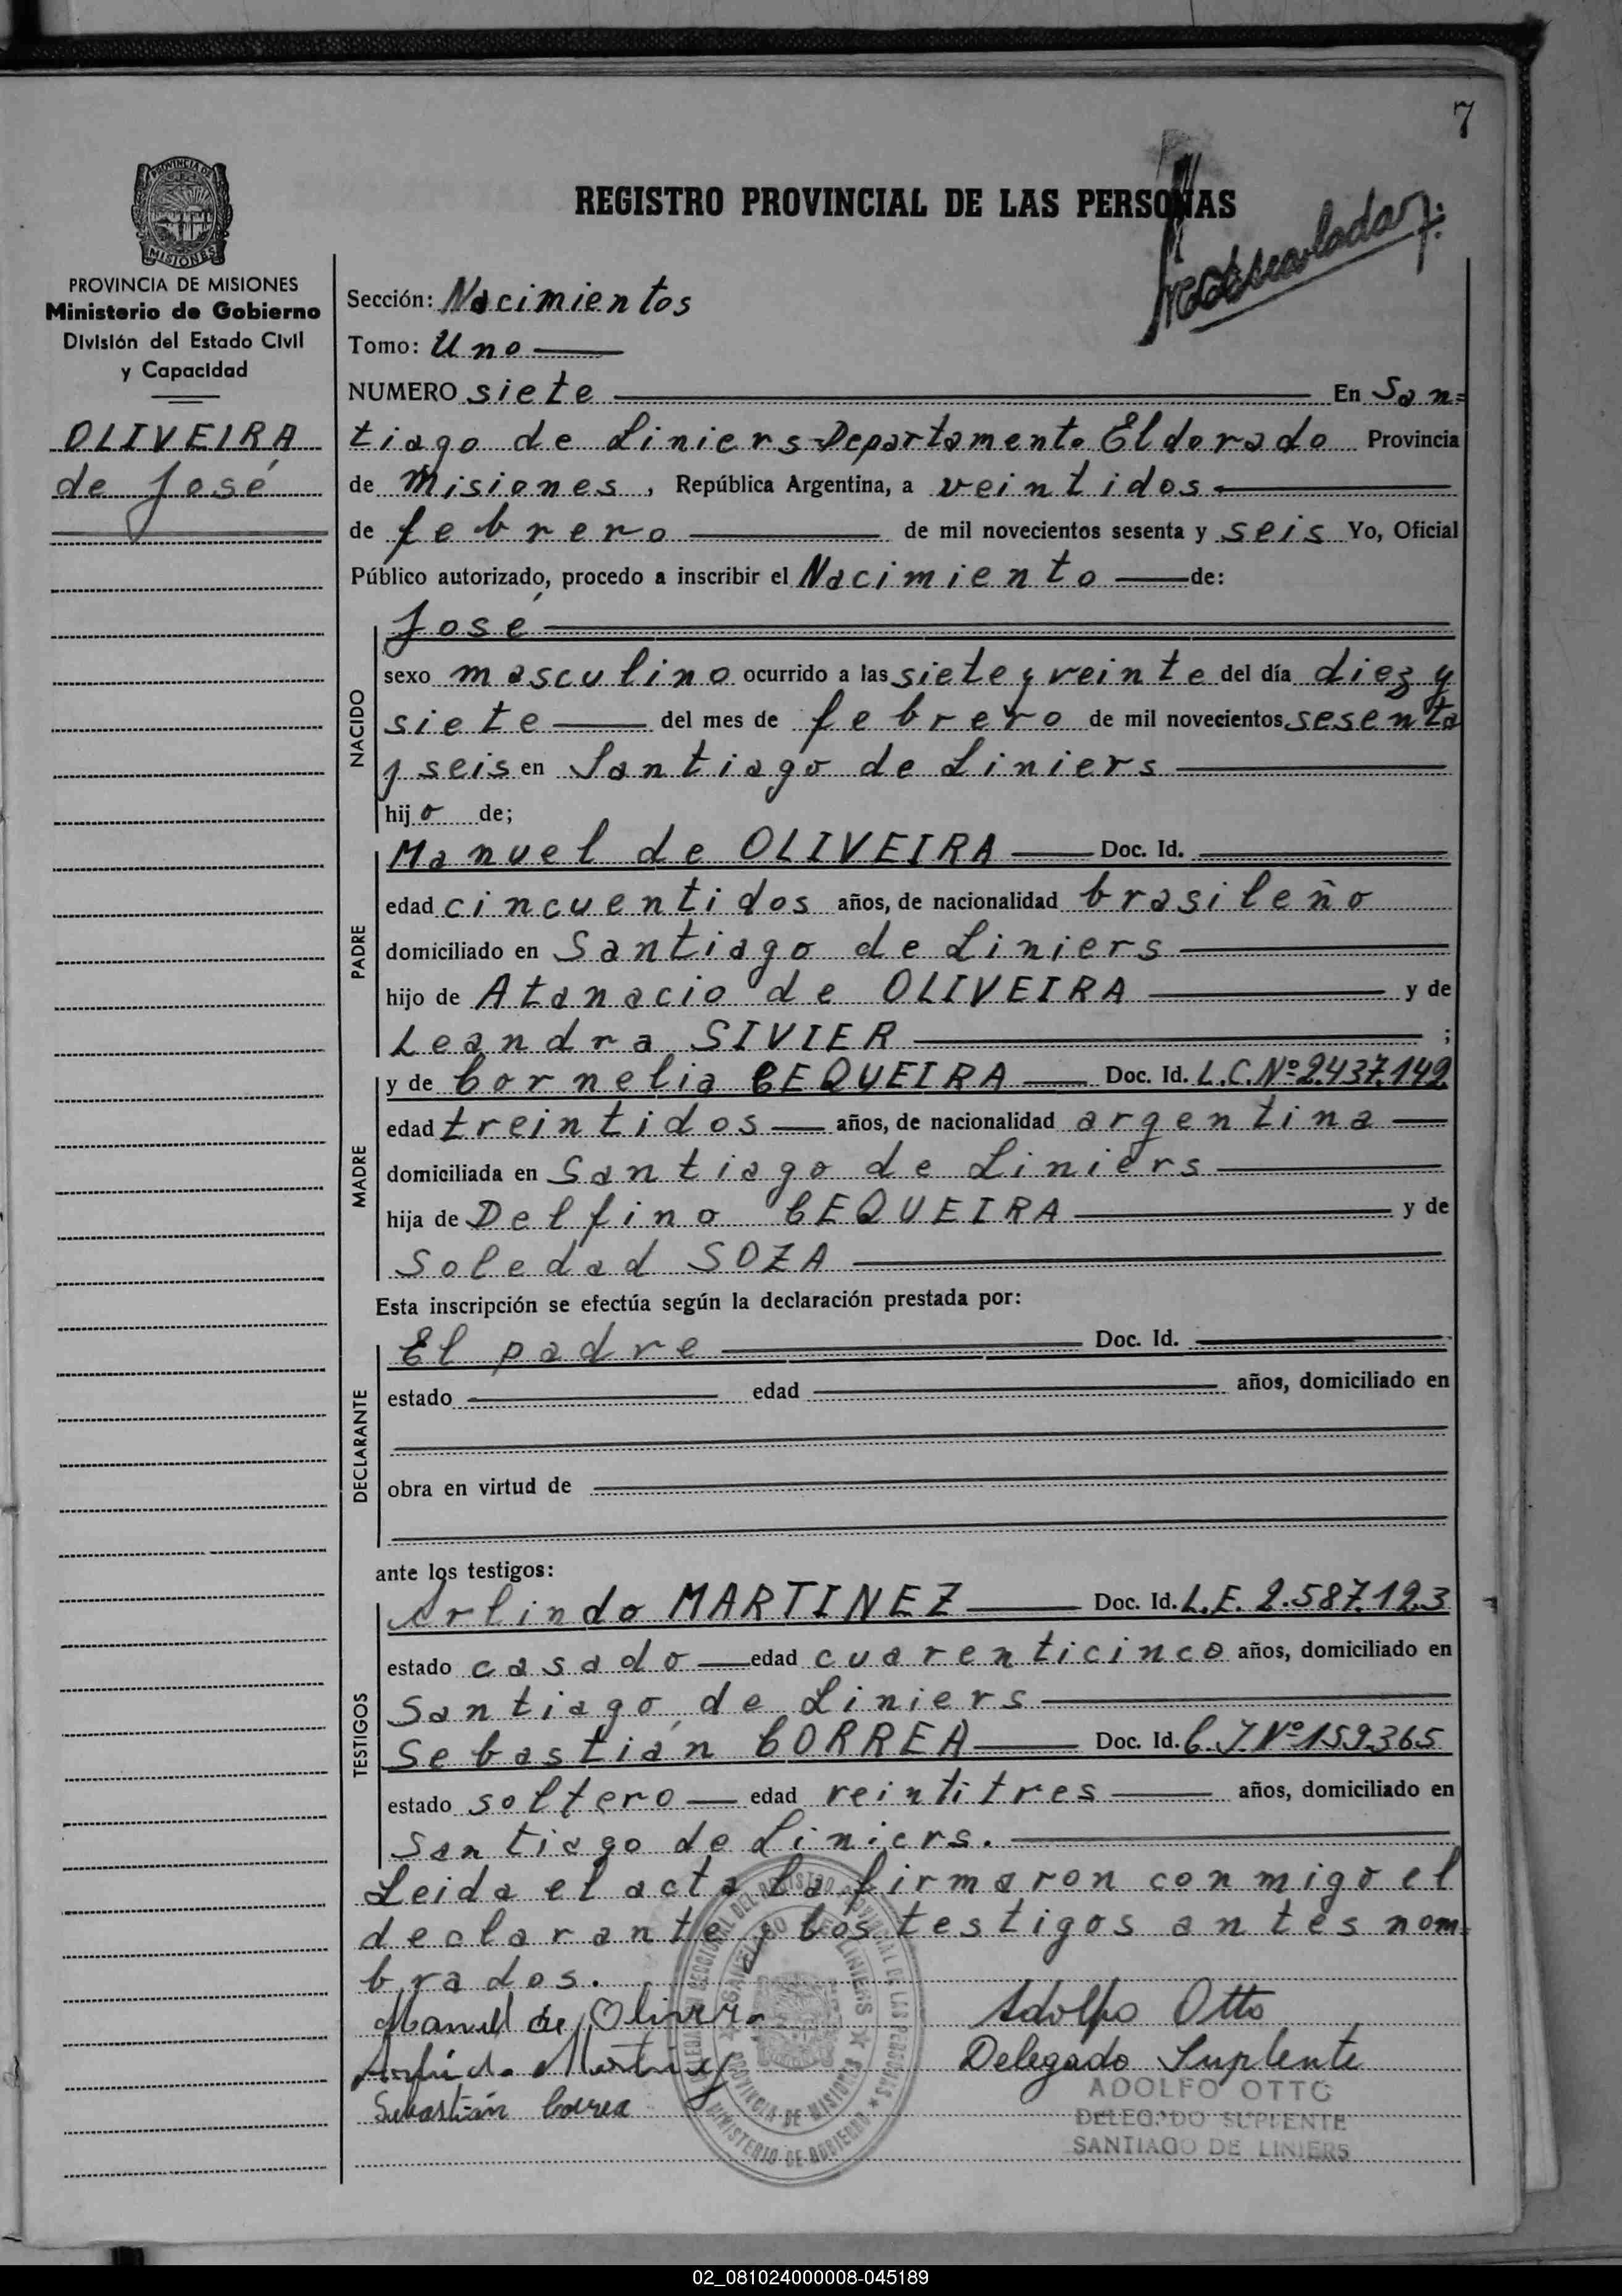 7
PROVINCIA DE
MISIONES
REGISTRO PROVINCIAL DE LAS PERSONAS
PROVINCIA DE MISIONES
Ministerio de Gobierno
División del Estado Civil
y Capacidad
OLIVEIRA
de José
Sección: Nacimientos
Tomo: Uno
NUMERO siete En San=
tiago de Liniers-Departamento Eldorado Provincia
de Misiones, República Argentina, a veintidos
de febrero de mil novecientos sesenta y seis Yo, Oficial
Público autorizado, procedo a inscribir el Nacimiento de:
NACIDO
José
sexo masculino ocurrido a las siete y veinte del día diez y
siete del mes de febrero de mil novecientos sesenta
y seis en Santiago de Liniers
hijo de;
PADRE
Manuel de OLIVEIRA Doc. Id.
edad cincuentidos años, de nacionalidad brasileño
domiciliado en Santiago de Liniers
hijo de Atanacio de OLIVEIRA y de
Leandra SIVIER ;
MADRE
y de Cornelia CEQUEIRA Doc. Id. L.C.Nº2.437.149
edad treintidos años, de nacionalidad argentina
domiciliada en Santiago de Liniers
hija de Delfino CEQUEIRA y de
Soledad SOZA
Esta inscripción se efectúa según la declaración prestada por:
DECLARANTE
El padre Doc. Id.
estado edad años, domiciliado en
obra en virtud de
ante los testigos:
TESTIGOS
Arlindo MARTINEZ Doc. Id. L.E. 2.587.123
estado casado edad cuarenticinco años, domiciliado en
Santiago de Liniers
Sebastián CORREA Doc. Id. C.I. Nº159.365
estado soltero edad veintitres años, domiciliado en
Santiago de Liniers.
Leida el acta la firmaron conmigo el
declarante y los testigos antes nom=
brados.
Manuel de Oliveira
Adolfo Otto
Delegado Suplente
Sebastián Correa
ADOLFO OTTO
DELEGADO SUPLENTE
SANTIAGO DE LINIERS
02_081024000008-045189